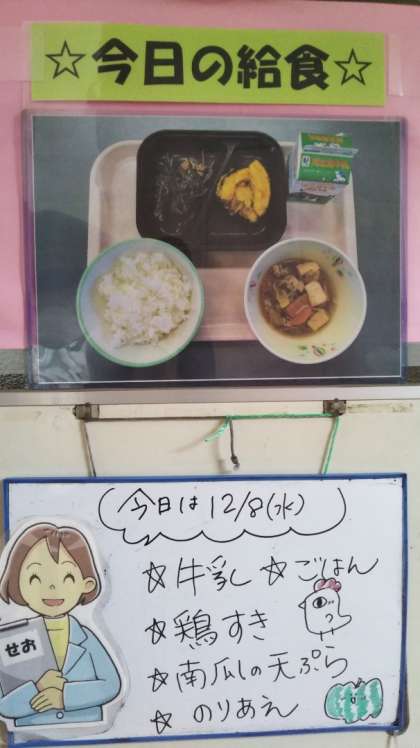 ☆今日の給食☆
今日は 12/8(水)
☆牛乳 ☆ごはん
☆鶏すき
☆南瓜の天ぷら
☆のりあえ
せお